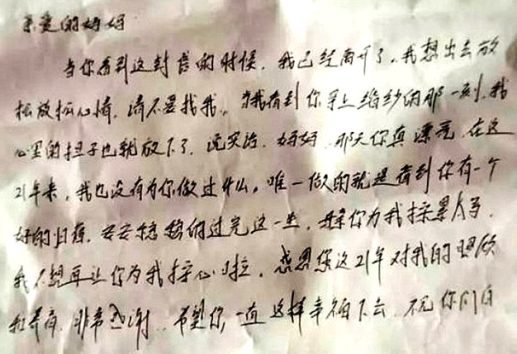 亲爱的妈妈
当你看到这封信的时候,我已经离开了,我想出去放
松放松心情,请不要找我。当我看到你穿上婚纱的那一刻,我
心里的担子也就放下了,说实话,妈妈,那天你真漂亮,在这
21年来,我也没有为你做过什么,唯一做的就是看到你有一个
好的归宿,安安稳稳的过完这一生,你为我操
我不想再让你为我操心,感恩您这21年对我的照顾
和养育,非常感谢,希望你一直这样幸福下去,不